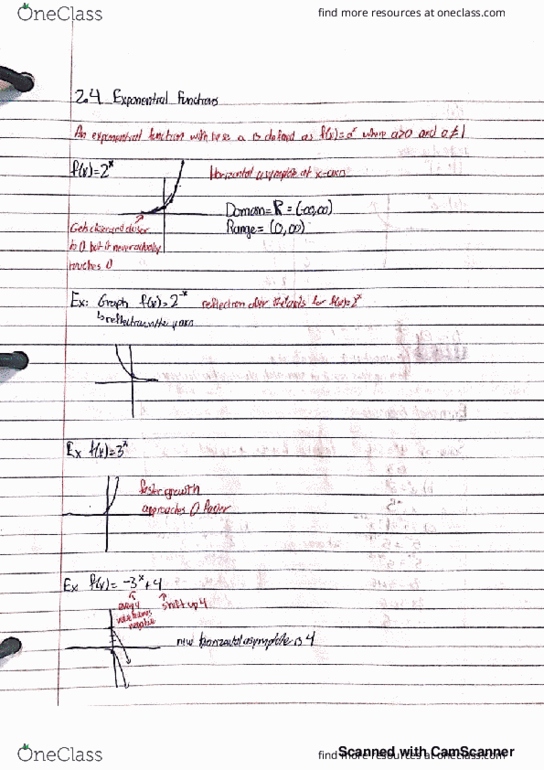 OneClass
find more resources at oneclass.com
2.4 Exponential Functions
An exponential function with base a is defined as f(x)=aˣ where a>0 and a≠1
f(x)=2ˣ
Horizontal asymptote at x-axis
Domain=R=(-∞,∞)
Range=(0,∞)
Gets closer and closer
to 0 but it never actually
touches 0
Ex: Graph f(x)=2⁻ˣ reflection over the for f(x)=2ˣ
↳reflection over the y axis
Ex f(x)=3ˣ
faster growth
approaches 0 faster
Ex f(x)=-3ˣ+4
every
value becomes
negative
shift up 4
new horizontal asymptote is 4
OneClass
find more resources at oneclass.com
Scanned with CamScanner